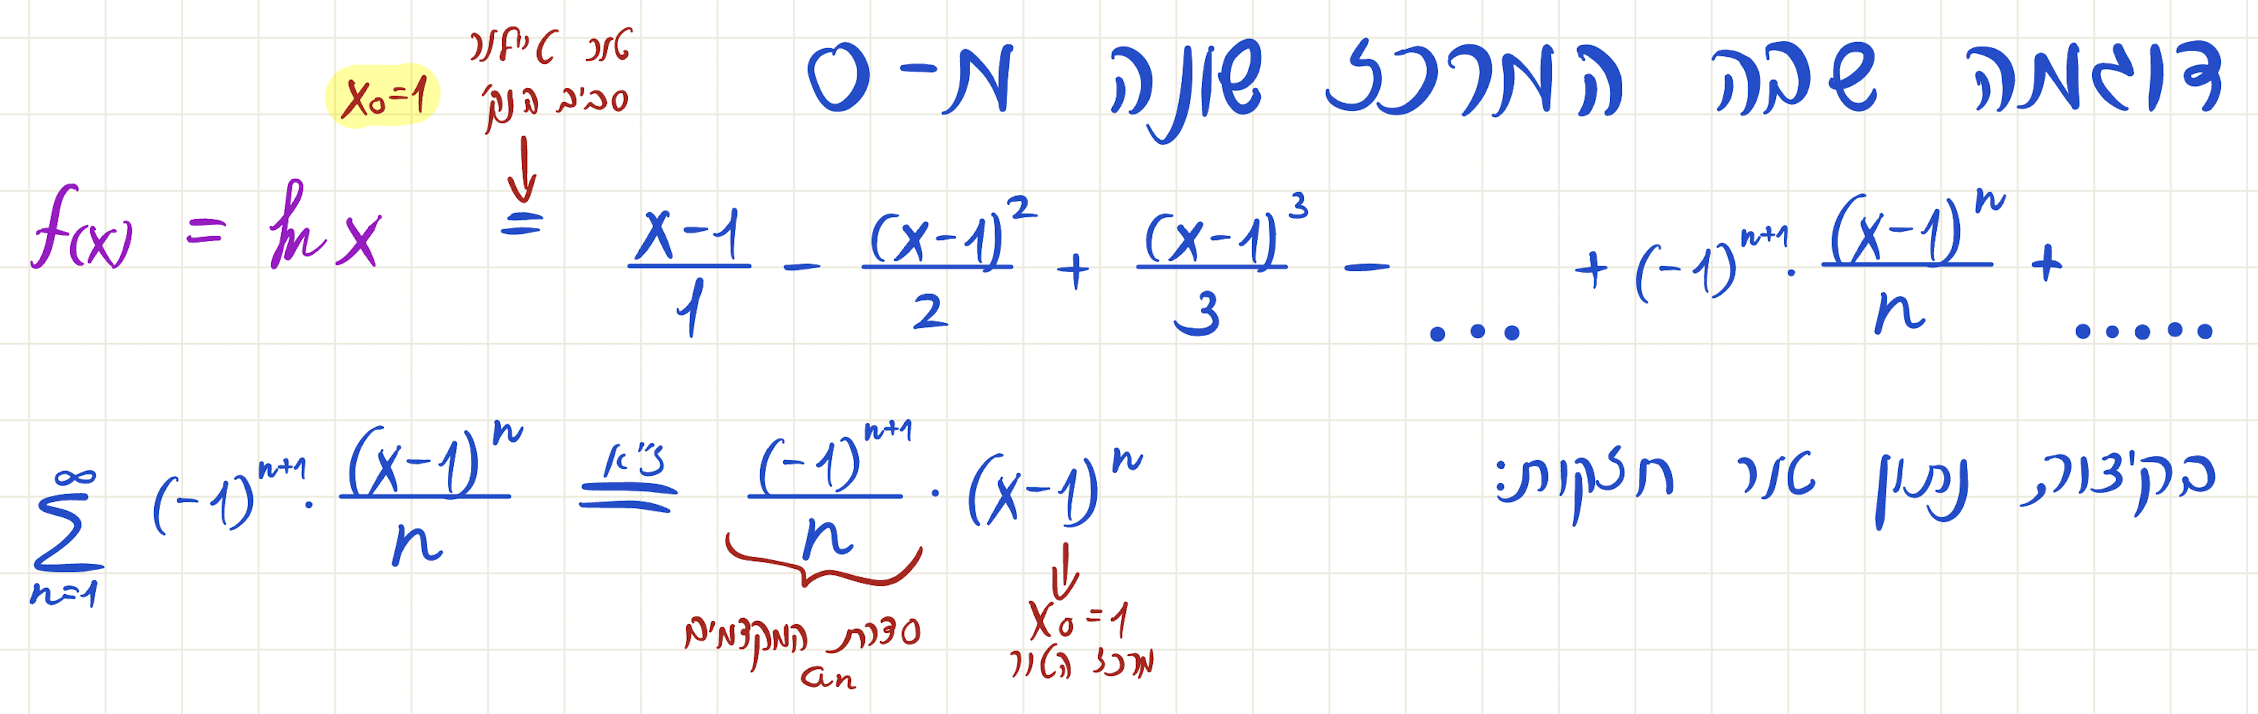 דוגמה שבה המרכז שונה מ-0
טור טיילור
סביב הנק' x₀=1
f(x) = ln x = (x-1)/1 - (x-1)²/2 + (x-1)³/3 - ... + (-1)ⁿ⁺¹ · (x-1)ⁿ/n + .....
בקיצור, נתון טור חזקות:
∑_{n=1}^{∞} (-1)ⁿ⁺¹ · (x-1)ⁿ/n =(צ"א)= (-1)ⁿ⁺¹/n · (x-1)ⁿ
סדרת המקדמים
aₙ
x₀=1
מרכז הטור